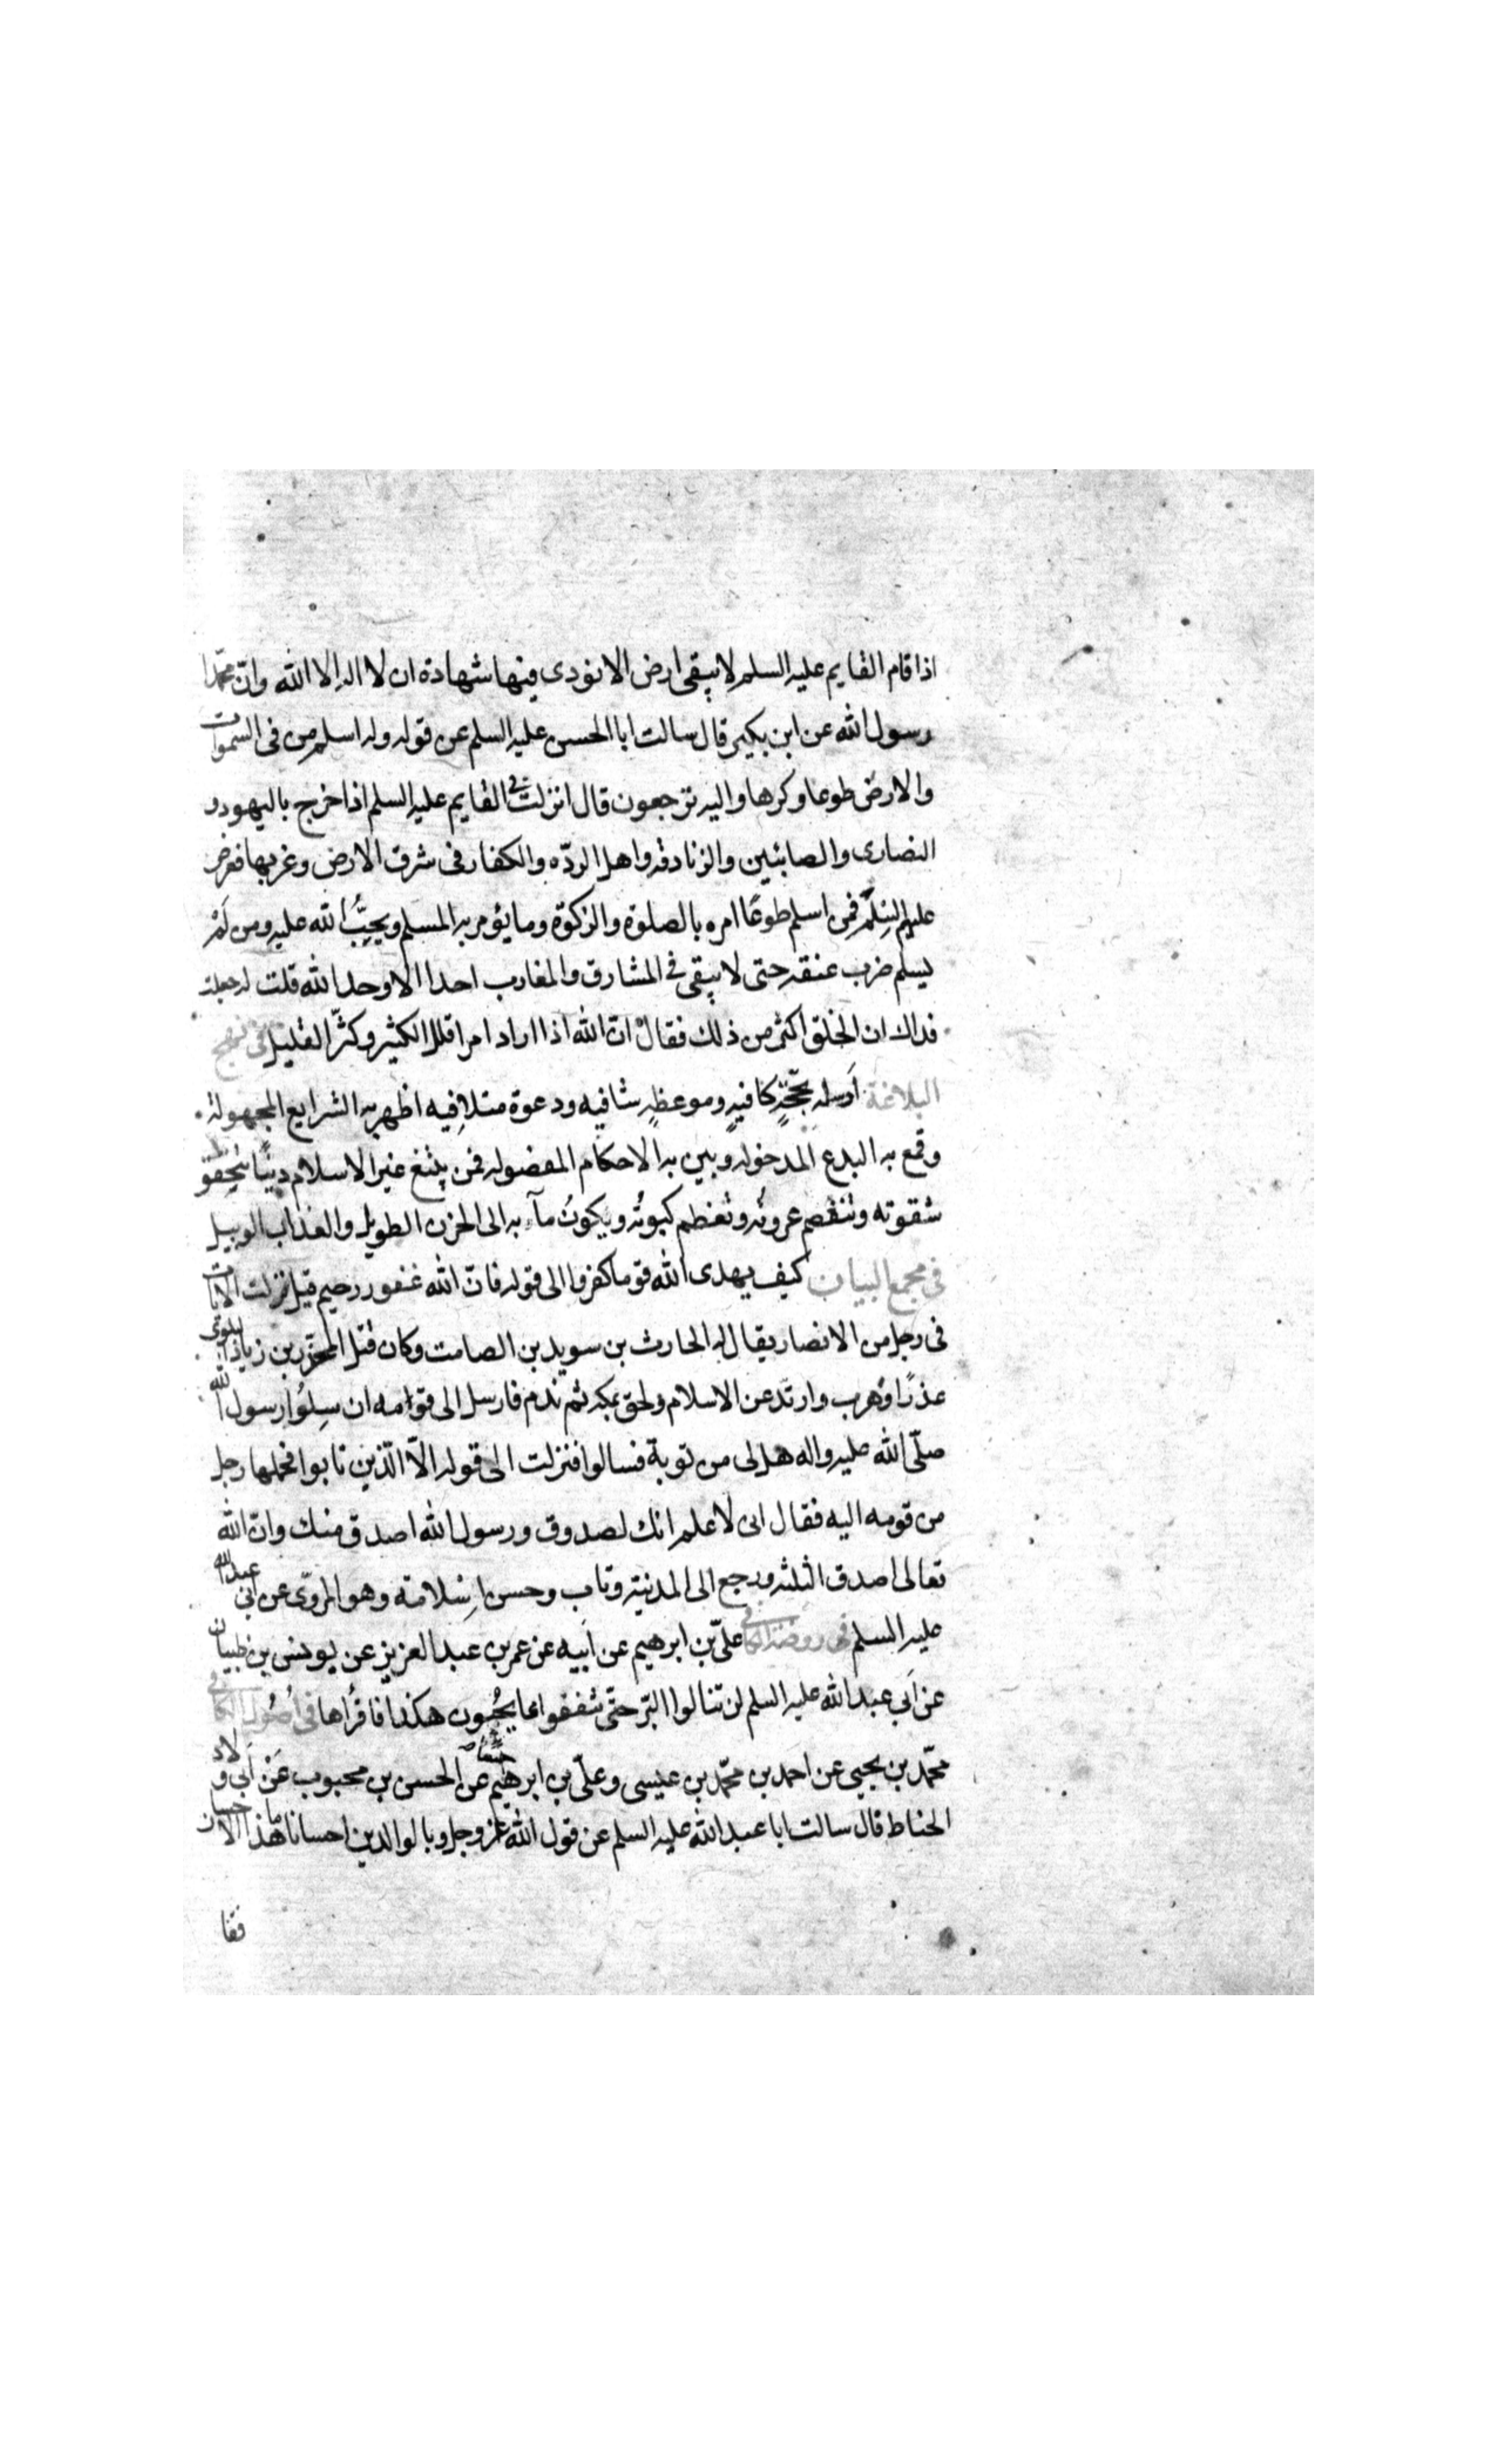 اذا قام القايم عليه السلم لا يبقى ارض الا نودى فيها شهادة ان لا اله الا الله وان محمدا
رسول الله عن ابن بكير قال سالت ابا الحسن عليه السلم عن قوله وله اسلم من فى السموات
والارض طوعا وكرها واليه ترجعون قال انزلت فى القايم عليه السلم اذا خرج باليهود و
النصارى والصابئين والزنادقه واهل الردّه والكفار فى شرق الارض وغربها فعرض
عليهم السلم فمن اسلم طوعًا امره بالصلوة والزكوة وما يؤمر به المسلم ويجبُ لله عليه ومن لَمْ
يسلم ضرب عنقه حتى لا يبقى فى المشارق والمغارب احدا الا وحد الله قلت له جعلت
فداك ان الخلق اكثر من ذلك فقال ان الله اذا اراد امرا قلل الكثير وكثّر القليل فى نهج
البلاغة ارسله بحجّةٍ كافيةٍ وموعظةٍ شافيه ودعوة متلافِيه اظهر به الشرايع المجهولة
وقمع به البدع المدخوله وبين به الاحكام المفضوله فمن يبتغ غير الاسلام دينًا يتحقق
شقوته وتنفصم عروته وتعظم كبوته ويكونُ مآبه الى الحزن الطويل والعذاب الوبيل
فى مجمع البيان كيف يهدى الله قوما كفروا الى قوله فان الله غفور رحيم قيل نزلت الآيات
فى رجل من الانصار يقال له الحارث بن سويد بن الصامت وكان قتل المحذر بن زياد البلوى
عذرًا وهرب وارتد عن الاسلام ولحق بمكه ثم ندم فارسل الى قوامه ان سِلُوا رسول الله
صلّى الله عليه واله هل لى من توبة فسالوا فنزلت الى قوله الاّ الّذين تابوا فحملها رجل
من قومه اليه فقال انى لاعلم انك لصدوق ورسول الله اصدق منك وان الله
تعالى اصدق الثلثه ورجع الى المدينة وتاب وحسن اسلامه وهو المروّى عن ابى عبد الله
عليه السلم فى روضة الكافى علىّ بن ابرهيم عن اَبيه عن عمر بن عبد العزيز عن يونس بن ظبيان
عن اَبى عبد الله عليه السلم لن تنالوا البّر حتّى تنفقوا ما يحُبون هكذا فاقرأها فى اُصُول الكافى
محّمد بن يحيى عن احمد بن محّمد بن عيسى وعلىّ بن ابرهيم جميعًا عن الحسن بن محبوب عَنْ اَبى ولاد
الحناط قال سالت ابا عبد الله عليه السلم عن قول الله عز وجل وبالوالدين احسانا ما هذا الاحسان
فقا